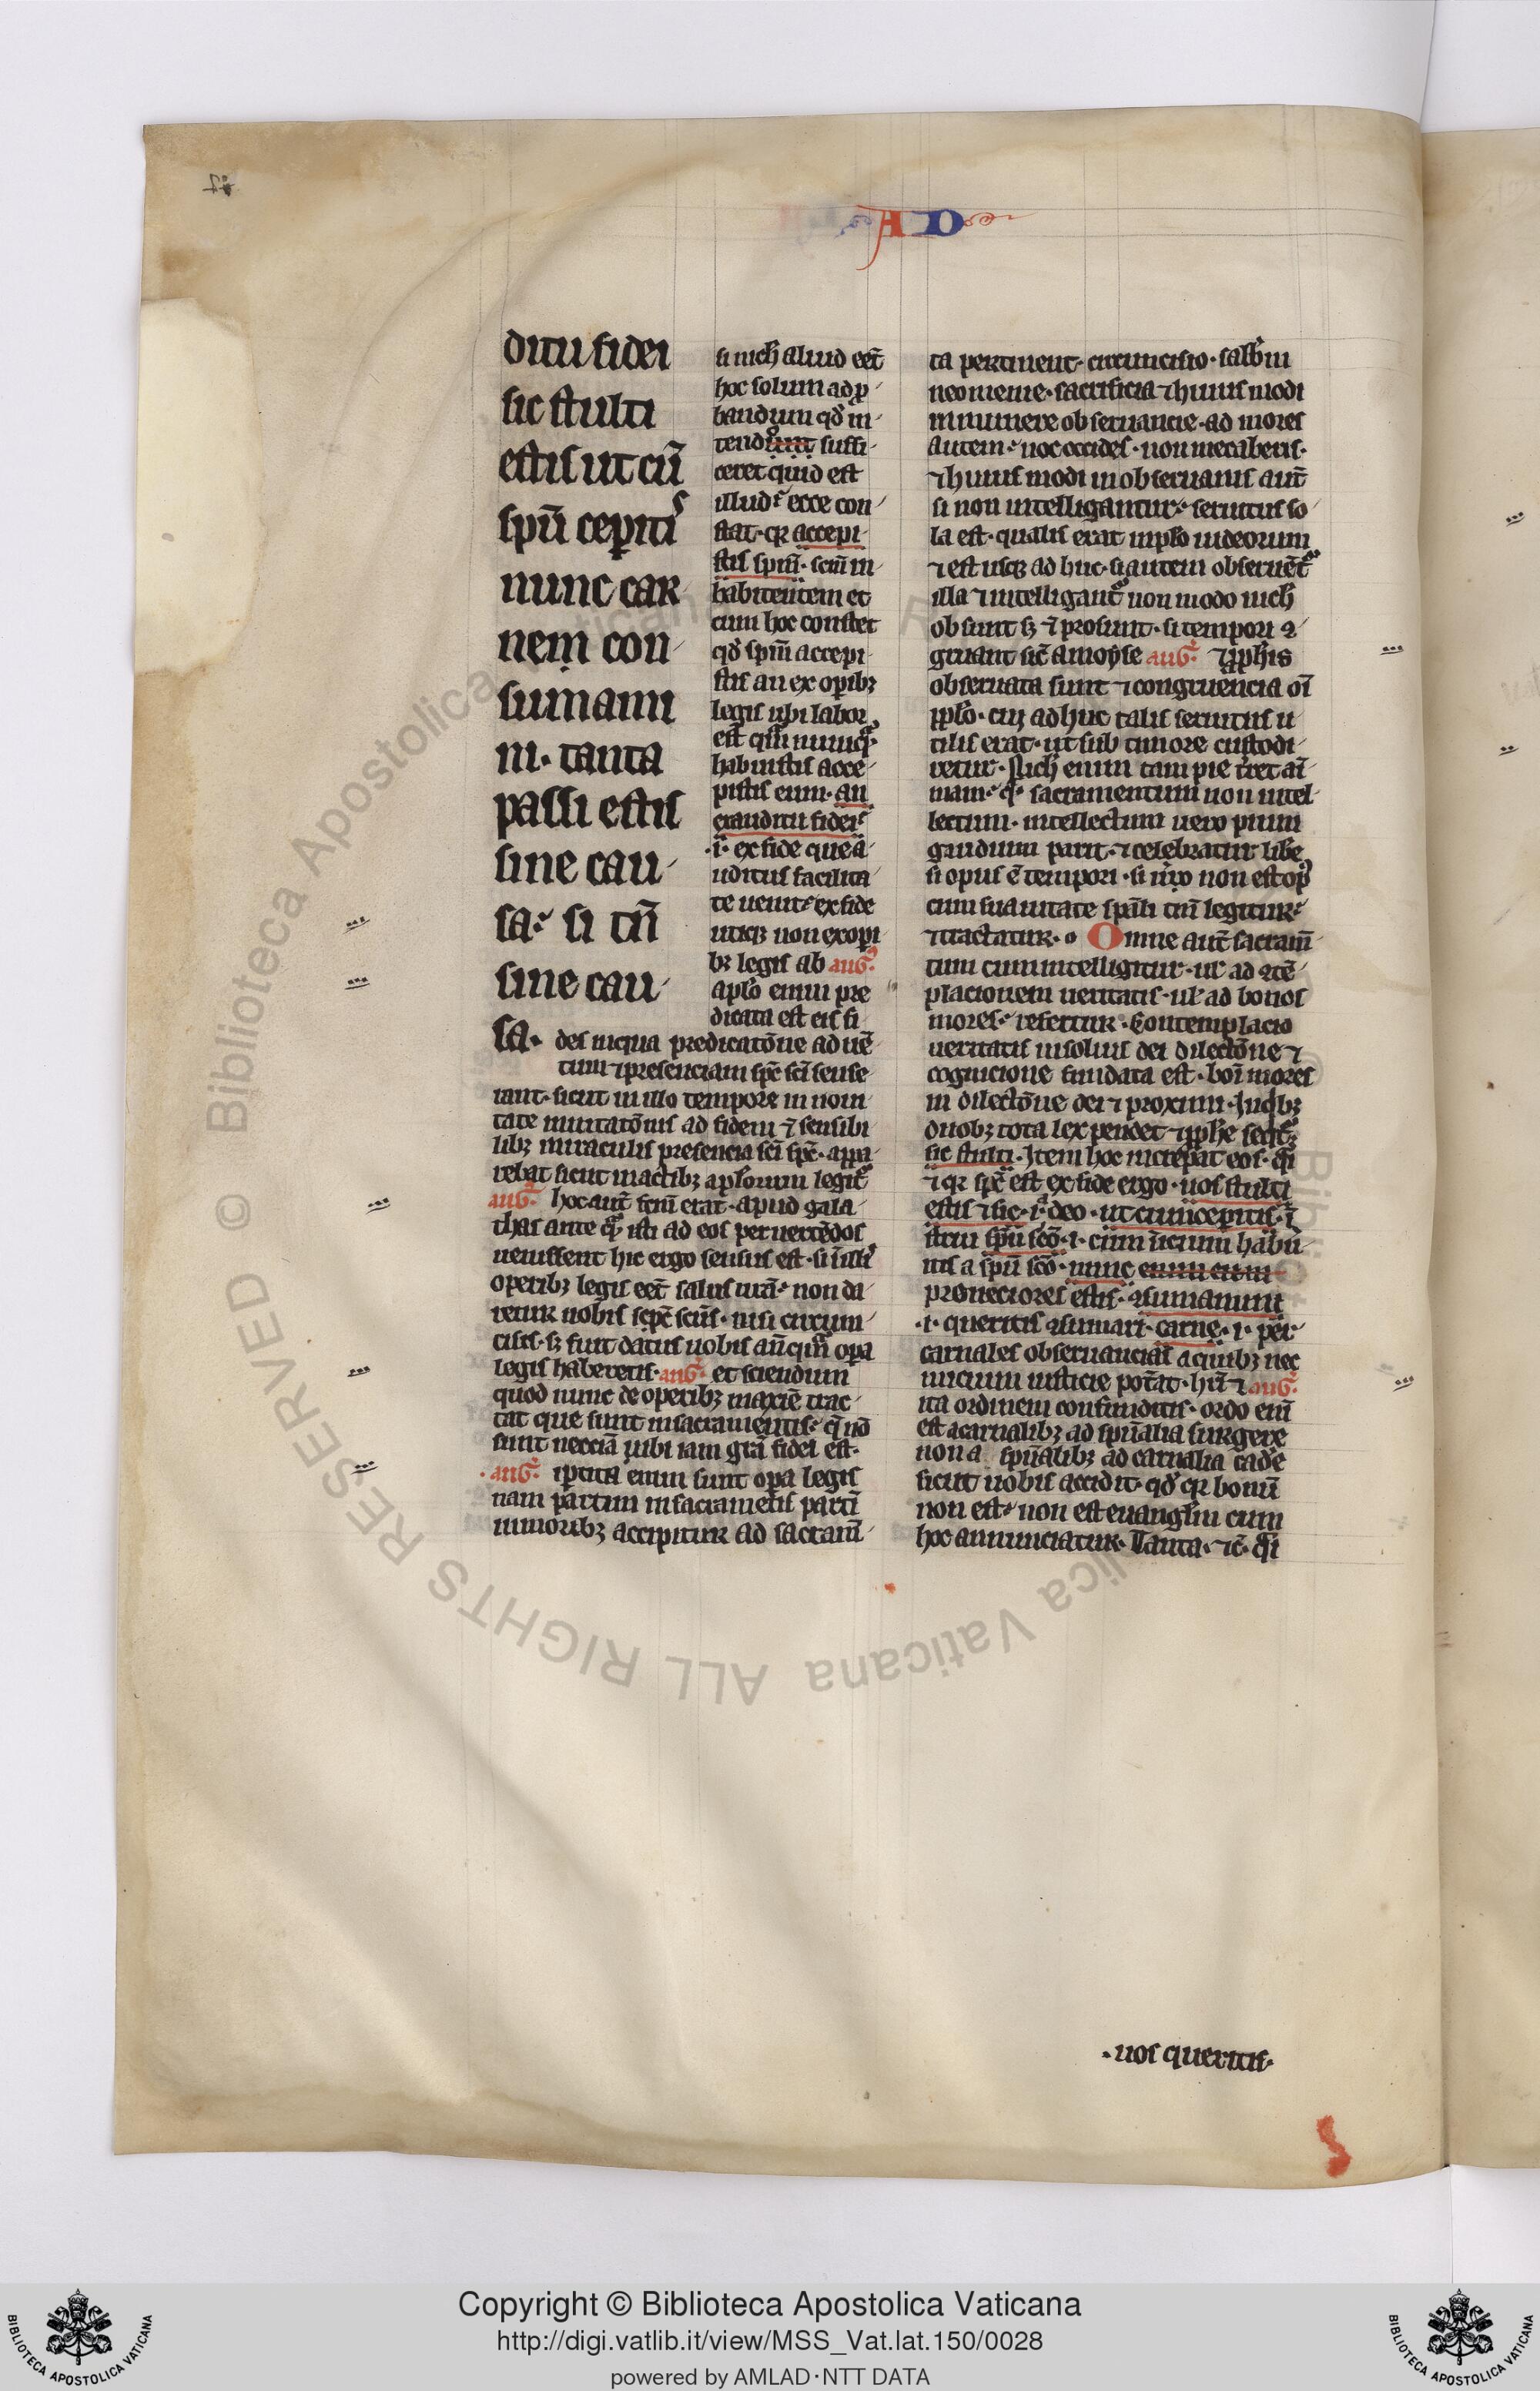 A D
ditu fidei
sic stulti
estis ut cū
spū cepitis
nunc car
nem con
sumami
ni. tanta
passi estis
sine cau
sa. si tn̄
sine cau
sa.
si nich aliud eēt
hoc solum ad p
bandum qd in
tend suffi
ceret quid est
illud. ecce con
stat. qr accepi
stis spm̄. scm̄ in
habitentem et
cum hoc constet
qd spm̄ accepi
stis an ex opibꝫ
legis ubi labor
est qm̄ nunqꝫ
habuistis acce
pistis eum. an
exauditu fidei
.i. ex fide que a
uditus facilita
te uenit. ex fide
utiqꝫ non ex opi
bꝫ legis ab aug.
aplo enim pre
dicata est eis fi
des in qua predicatōne aduē
tum ⁊ presenciam spc sci sense
rant. sicut in illo tempore in noui
tate inuitatōnis ad fidem ⁊ sensibi
libꝫ miraculis presencia sci spc. appa
rebat sicut in actibꝫ aplorum legit̄
aug. hoc aut̄ erat. apud gala
thas ante qꝫ isti ad eos peruertēdos
uenissent hic ergo sensus est. si in illis
operibꝫ legis eēt salus urā. non da
retur uobis spc scūs. nisi circum
cisis. sꝫ fuit datus uobis anqm̄ opa
legis haberetis. aug. et sciendum
quod nunc de operibꝫ maxie trac
tat que sunt in sacramentis. qꝫ nō
sunt necciā ubi iam grā fidei est.
.aug. iptita enim sunt opa legis
nam partim in sacrametis parti
in moribꝫ accipitur ad sacram̄
ta pertinent. circuncisio. sabbm
neomenie. sacrificia ⁊ huius modi
innumere obseruancie. ad mores
autem. noc occides. non mecaberis.
⁊ huius modi in obseruanis aut̄
si non intelligantur. seruitus so
la est. qualis erat in plo iudeorum
⁊ est usqꝫ ad huc. si autem obseruēt
illa ⁊ intelligant̄ non modo nich
obsunt sꝫ ⁊ prosunt. si tempori 9
gruant sic̄ a moyse aug. ⁊ pphis
obseruata sunt ⁊ congruencia oī
pplo. cui adhuc talis seruitus u
tilis erat. ut sub timore custodi
retur. Nich enim tam pie tret ai
mam. qꝫ sacramentum non intel
lectum. intellectum uero pium
gaudium parit. ⁊ celebratur libe
si opus ē tempori. si uero non est op
cum suauitate spāli tm̄ legitur
⁊ tractatur. Omne aut̄ sacram̄
tum cum intelligitur. ul ad 9tē
placionem ueritatis. ul ad bonos
mores. refertur. Contemplacio
ueritatis in solius dei dilectōne ⁊
cognicione fundata est. boī mores
in dilectōne dei ⁊ proximi. In qbꝫ
duobꝫ tota lex pendet ⁊ pphe
sic stulti. Item hoc increpat eos. qi
⁊ qr spc est ex fide ergo. uos stulti
estis ⁊ sic. i. deo. ut cum ceperitis. ī
stru spū scō. i. cum inicium habu
itis a spū scō. nunc enim cum
proueciores estis. 9sumamini
.i. queritis 9sumari. carne. i. per
carnales obseruancias a quibꝫ nec
inicium iusticie potat. hi ⁊ aug.
ita ordinem confunditis. ordo enī
est a carnalibꝫ ad spūalia surgere
non a spūalibꝫ ad carnalia cade
sicut uobis accidit. qd qr bonū
non est. non est euanglm cum
hoc annunciatur. Tanta. ⁊c. qi
.uos queritis.
Copyright © Biblioteca Apostolica Vaticana
http://digi.vatlib.it/view/MSS_Vat.lat.150/0028
powered by AMLAD·NTT DATA